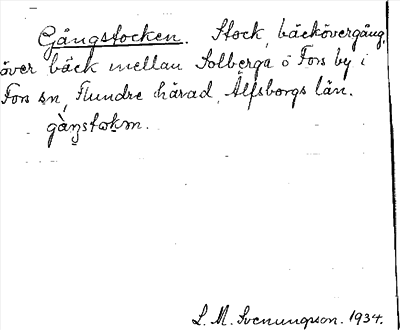 Gångstocken. Stock, bäckövergång,
över bäck mellan Solberga o Fors by i
Fors sn, Flundre härad, Älfsborgs län.
gàŋstɷkm.
L. M. Svenungsson. 1934.